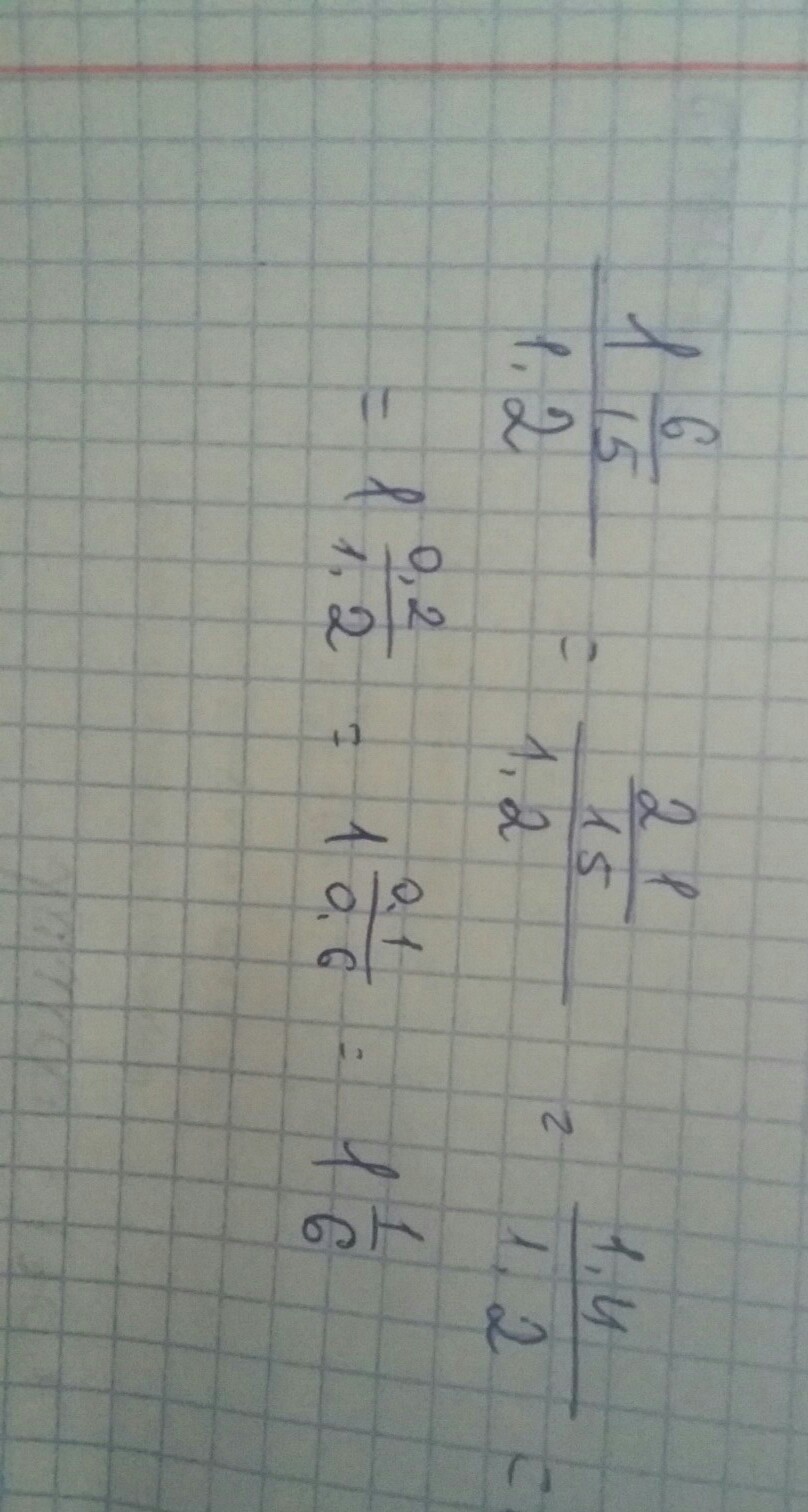 1 6/15 / 1,2 = 21/15 / 1,2 = 1,4 / 1,2 =
= 1 0,2/1,2 = 1 0,1/0,6 = 1 1/6